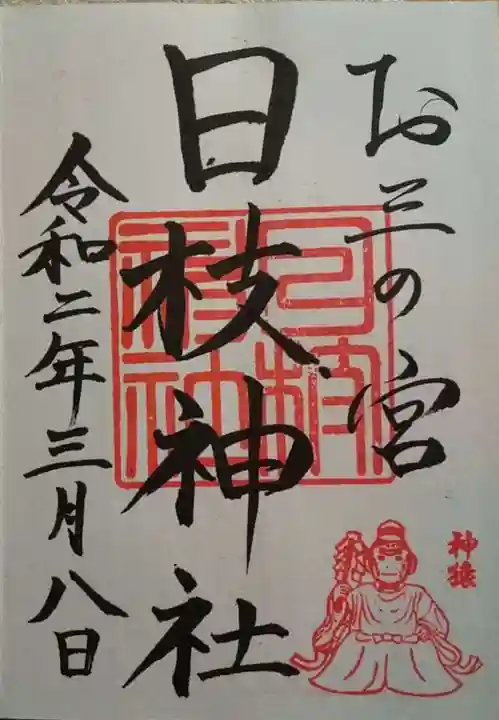 お三の宮
日枝神社
令和二年三月八日
日枝
神社
神猿